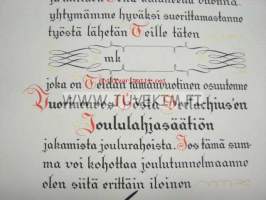 yhtymämme hyväksi suorittamastanne
työstä lähetän Teille täten
mk
joka on Teidän tämänvuotinen osuutenne
Vuorineuvos Gösta Serlachius'en
Joululahjasäätiön
jakamista joulurahoista. Jos tämä sum-
ma voi kohottaa joulutunnelmaanne
olen siitä erittäin iloinen